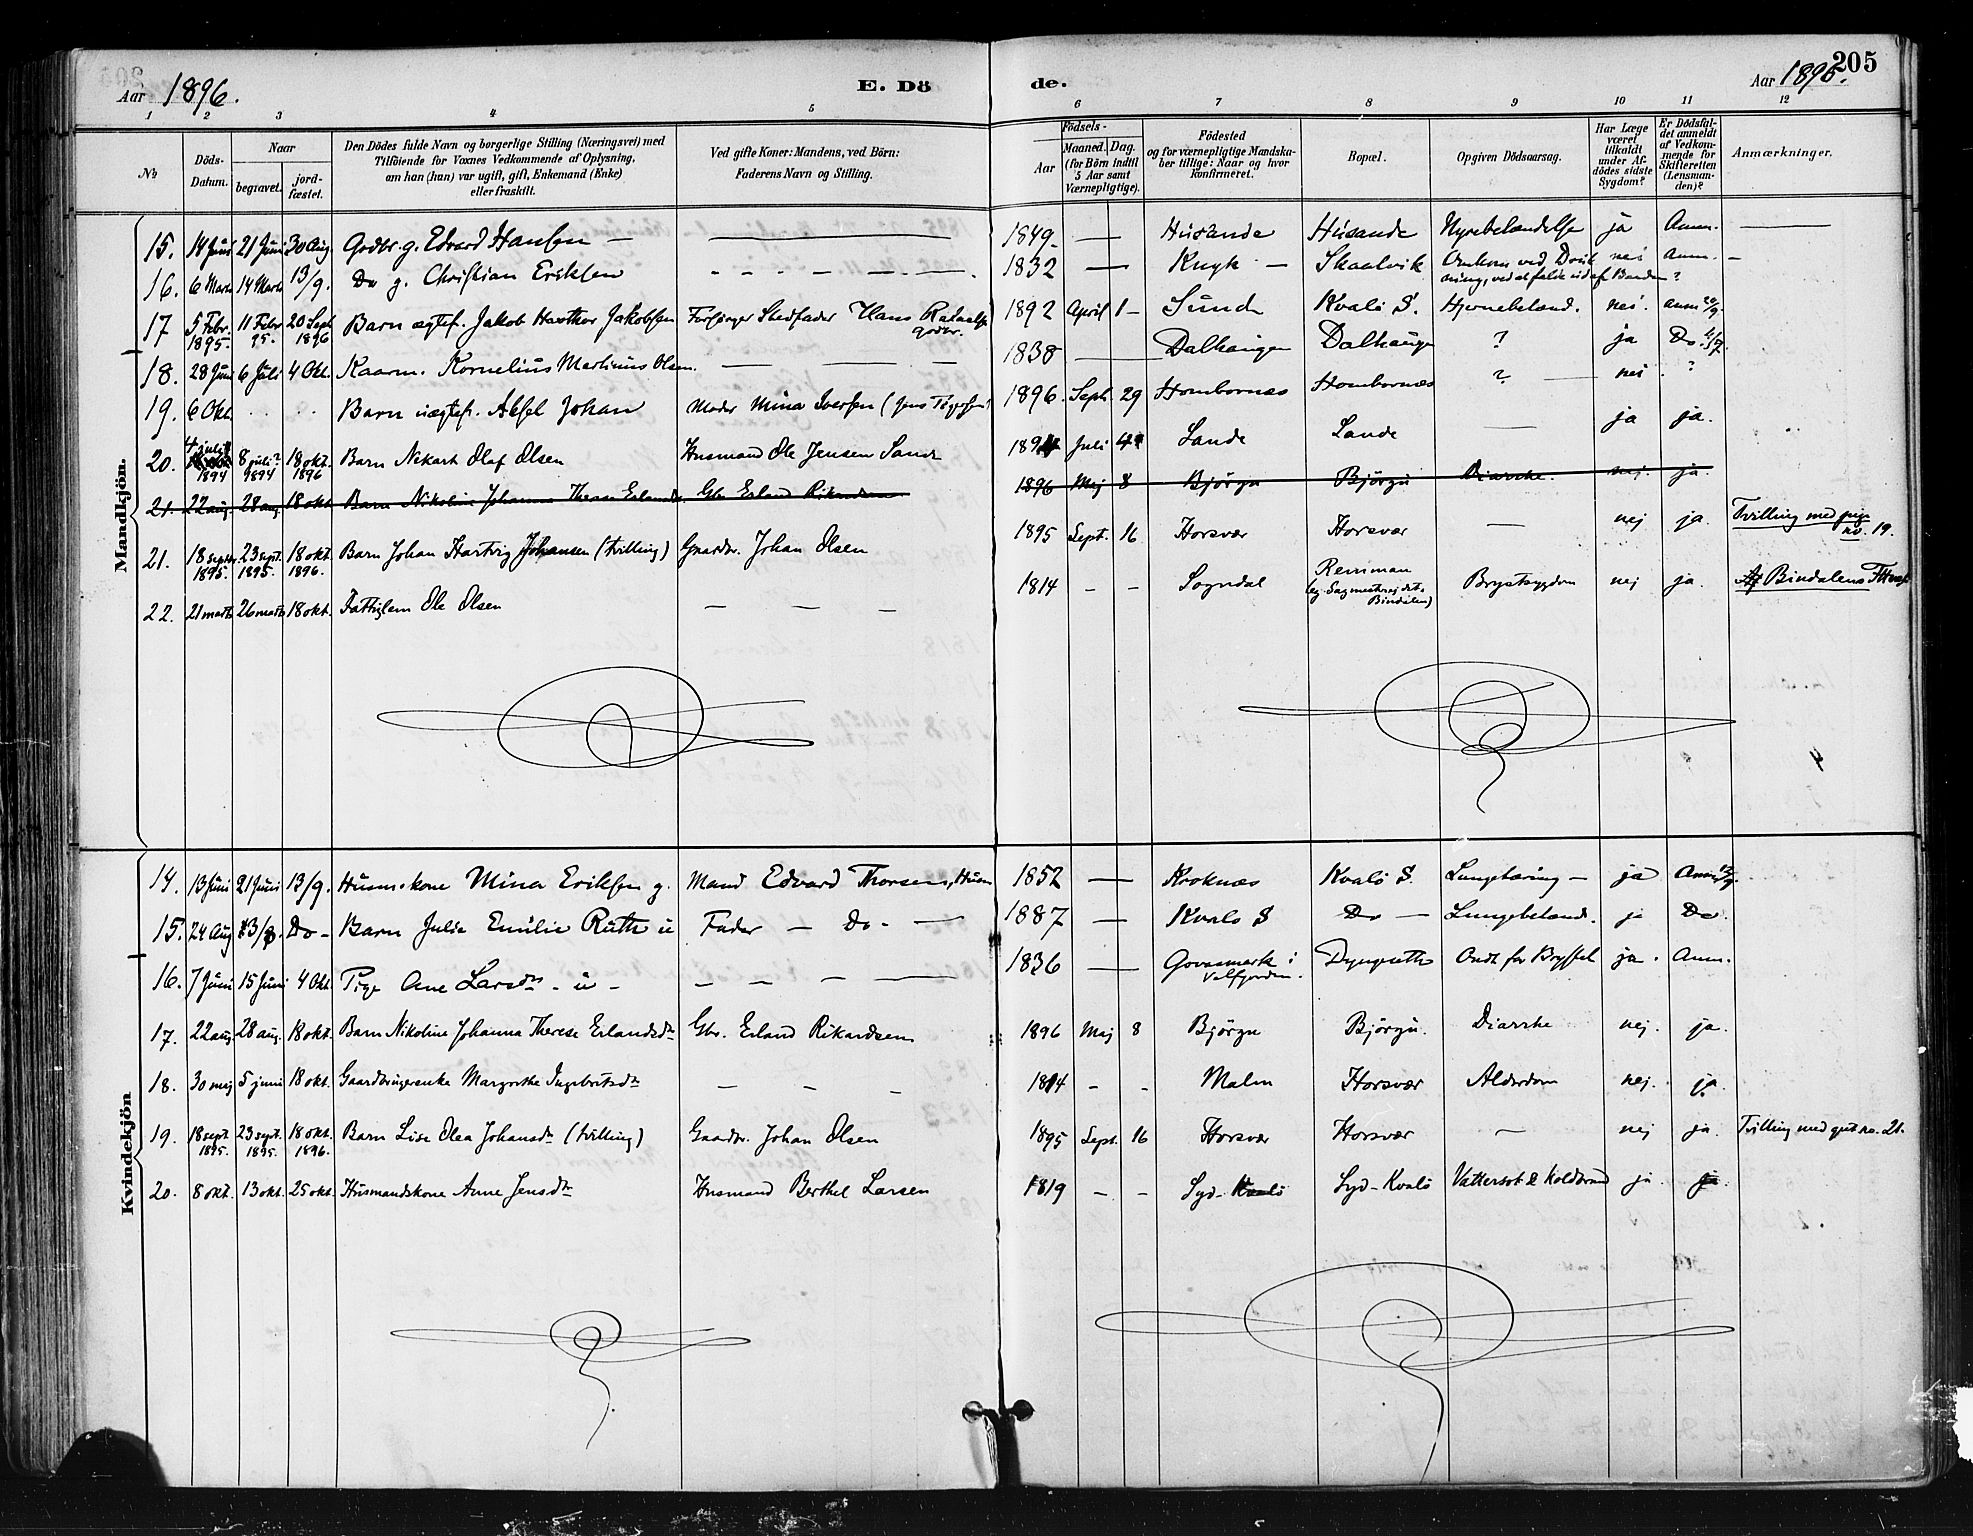 205
Aar 1896.
E. Dö
de.
Aar 1896.
1 2 3 4 5 6 7 8 9 10 11 12
No
Döds-Datum.
Naar
begravet.
jord-fæstet.
Den Dödes fulde Navn og borgerlige Stilling (Næringsvei) med
Tilföiende for Voxnes Vedkommende af Oplysning,
om han (hun) var ugift, gift, Enkemand (Enke)
eller fraskilt.
Ved gifte Koner: Mandens, ved Börn:
Faderens Navn og Stilling.
Födsels-
Aar
Maaned. Dag.
(for Börn indtil
5 Aar samt
Værnepligtige).
Födested
og for værnepligtige Mandska-
ber tillige: Naar og hvor
konfirmeret.
Bopæl.
Opgiven Dödsaarsag.
Har Læge
været
tilkaldt
under Af-
dödes sidste
Sygdom?
Er Dödsfal-
det anmeldt
af Vedkom-
mende for
Skifteretten
(Lensman-
den)?
Anmærkninger.
Mandkjön.
15. 14 Juni 21 Juni 30 Aug. Godbr. g. Edvard Hansen — 1849 — Husande Husande Nyrebetændelse ja Anm.
16. 6 Marts 14 Marts 13/9. Do g. Christian Eriksen 1832 — Skaalvik nei Anm. —
17 5 Febr. 1895. 11 Febr 95. 20 Sept 1896 Barn ægtef. Jakob Jakobsen Stedfader Hans 1892 April 1 — Sund Kvalö S. Hjernebetænd. nei. anm 20/9.
18. 28 Juni 6 Juli 4 Okt. Kaarm. Kornelius Martinus Olsen. 1838 — Dalhaugen Dalhaugen ? ja Do
19. 6 Okt. Barn uægtef. Aksel Johan Moder Mina Iversen 1896. Sept. 29 Hombornæs Hombornæs ? nei ?
20. 4 juli 1894 8 juli? 1894 18 okt. 1896 Barn Nekart Olaf Olsen Husmand Ole Jensen Sande 1894 Juli 4 Sande Sande — ja ja.
21. 22 aug. 28 aug. 18 okt. Barn Nikoline Johanna Therese Erlandsd. Gbr. Erland Rikardsen 1896 Mej 8 Björgu Björgu Diarrhe. nej. ja.
21. 18 septbr. 1895. 23 sept. 1895. 18 okt. 1896. Barn Johan Hartvig Johansen (tvilling) Gaardbr. Johan Olsen 1895 Sept. 16 Horsvær Horsvær — nej ja. Tvilling med pige no. 19.
22. 21 marts 26 marts 18 okt. Fattiglem Ole Olsen — — — 1814 - - Sogndal Bindalen) Brystsygdom nej ja. Af Bindalens
Kvindekjön
14. 13 Juni 21 Juni 13/9. Husm.kone Mina Eriksen g. Mand Edvard Thorsen, Husm 1852 — Kroknæs Kvalö S. Lungetæring — ja Anm
15. 24 Aug Do - Barn Julie Emilie Ruth u Fader — Do - 1887 — Kvalö S Do — Lungebetænd. ja Do
16. 7 Juni 15 Juni 4 Okt. Pige Ane Larsdtr - u - 1836 — i Velfjorden. Ondt for Brystet ja. Anm.
17. 22 aug. 28 aug. 18 okt. Barn Nikoline Johanna Therese Erlandsdtr Gbr. Erland Rikardsen 1896 Mej 8 Björgu Björgu. Diarrhe nej. ja.
18. 30 mej 5 juni 18 okt. Gaardbrugerenke Margrethe Ingebrigtsdtr — — — 1814 - - Malm Horsvær Alderdom nej. ja.
19. 18 sept. 1895. 23 sept. 1895. 18 okt. 1896. Barn Lise Olea Johansdtr (tvilling) Gaardbr. Johan Olsen 1895 Sept. 16 Horsvær Horsvær — nej ja. Tvilling med gut no. 21.
20. 8 okt. 13 okt. 25 okt. Husmandskone Anne Jensdtr Husmand Berthel Larsen 1819 - - Syd-Kvalö Syd-Kvalö Vattersot & Koldbrand ja ja